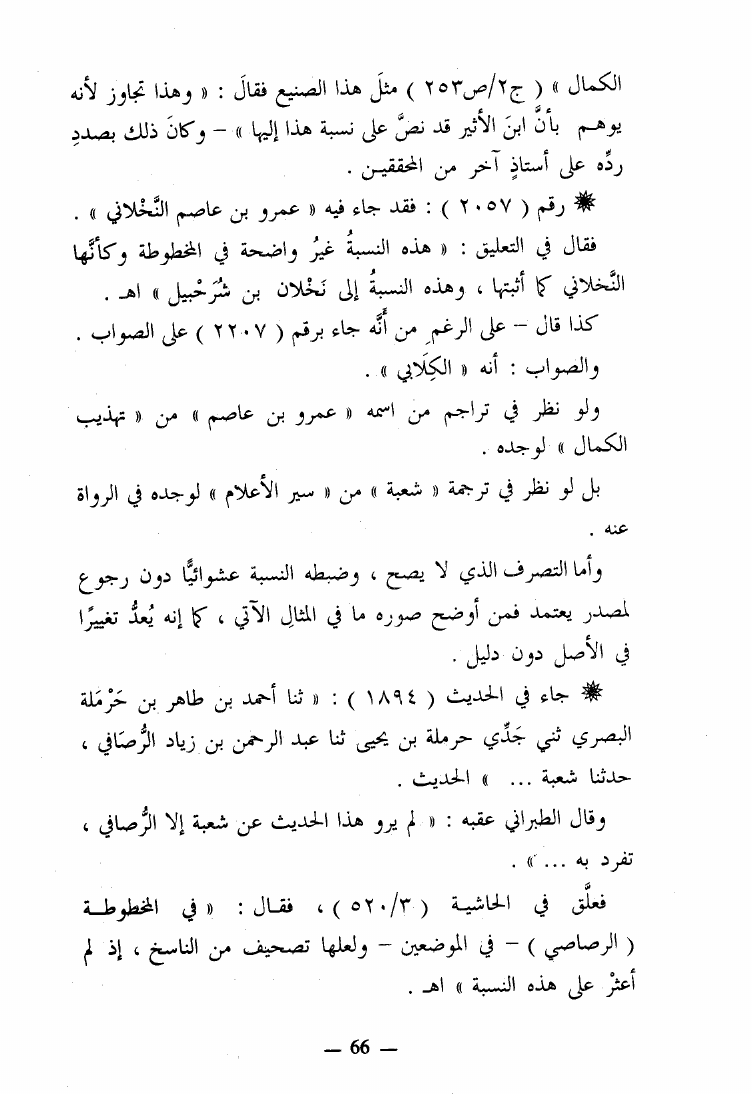 الكمال » ( ج٢/ص٢٥٣ ) مثلَ هذا الصنيع فقالَ : « وهذا تجاوز لأنه
يوهـم بأنَّ ابنَ الأثير قد نصَّ على نسبة هذا إليها » – وكانَ ذلك بصددِ
ردِّه على أستاذٍ آخر من المحققيـن .
❋ رقم ( ٢٠٥٧ ) : فقد جاء فيه « عمرو بن عاصم النَّخْلاني » .
فقال في التعليق : « هذه النسبةُ غيرُ واضحة في المخطوطة وكأنَّها
النَّخلاني كما أثبتها ، وهذه النسبةُ إلى نَخْلان بن شُرَحْبيل » اهـ .
كذا قال – على الرغمِ من أنَّه جاء برقم ( ٢٢٠٧ ) على الصواب .
والصواب : أنه « الكِلَابي » .
ولو نظر في تراجم من اسمه « عمرو بن عاصم » من « تهذيب
الكمال » لوجده .
بل لو نظر في ترجمة « شعبة » من « سير الأعلام » لوجده في الرواة
عنه .
وأما التصرف الذي لا يصح ، وضبطه النسبة عشوائيًّا دون رجوع
لمصدر يعتمد فمن أوضح صوره ما في المثالِ الآتي ، كما إنه يُعدُّ تغييرًا
في الأصل دون دليل .
❋ جاء في الحديث ( ١٨٩٤ ) : « ثنا أحمد بن طاهر بن حَرْمَلة
البصري ثني جَدِّي حرملة بن يحيى ثنا عبد الرحمن بن زياد الرُّصَافي ،
حدثنا شعبة ... » الحديث .
وقال الطبراني عقبه : « لم يرو هذا الحديث عن شعبة إلا الرُّصافي ،
تفرد به ... » .
فعلَّق في الحاشيـة ( ٥٢٠/٣ ) ، فقـال : « في المخطوطـة
( الرصاصي ) – في الموضعين – ولعلها تصحيف من الناسخ ، إذ لم
أعثرْ على هذه النسبة » اهـ .
— 66 —